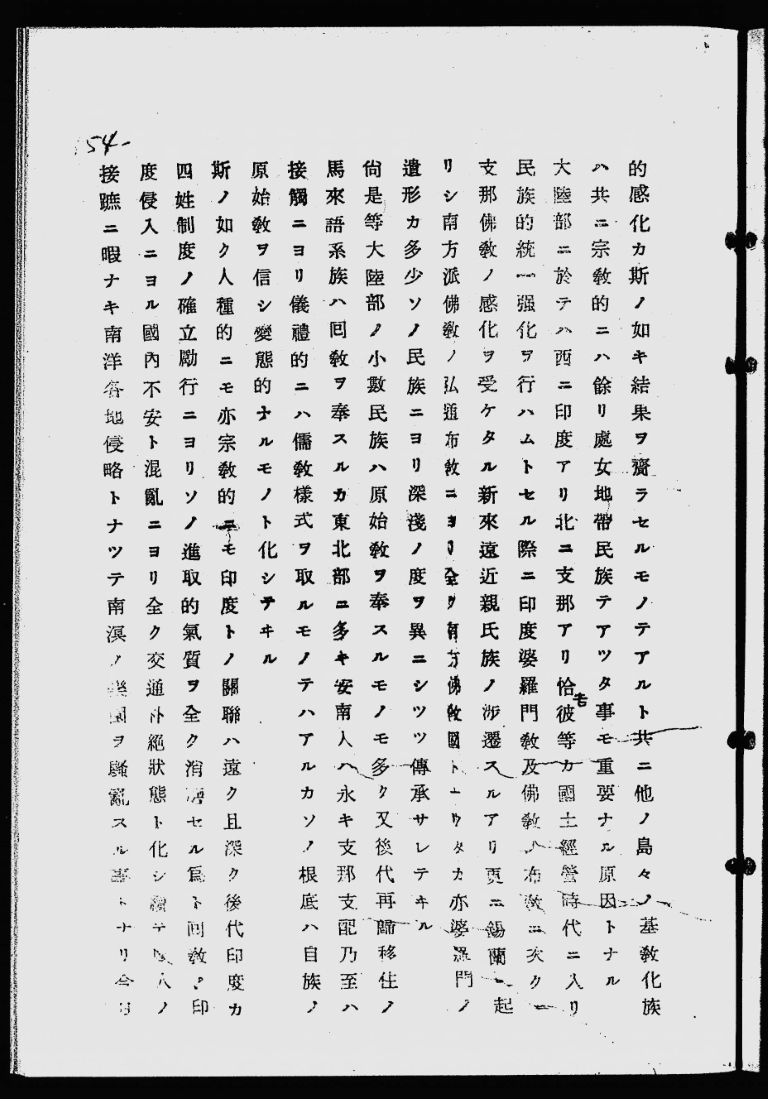 54-
的感化カ斯ノ如キ結果ヲ齎ラセルモノテアルト共ニ他ノ島々ノ基敎化族
ハ共ニ宗敎的ニハ餘リ處女地帶民族テアツタ事モ重要ナル原因トナル
大陸部ニ於テハ西ニ印度アリ北ニ支那アリ恰モ彼等カ國土經營時代ニ入リ
民族的統一强化ヲ行ハムトセル際ニ印度婆羅門敎及佛敎ノ布敎ニ次クニ
支那佛敎ノ感化ヲ受ケタル新來遠近親氏族ノ涉遷スルアリ更ニ錫蘭ニ起
リシ南方派佛敎ノ弘通布敎ニヨリ全ク南方佛敎國トナリタカ亦婆羅門ノ
遺形カ多少ソノ民族ニヨリ深淺ノ度ヲ異ニシツツ傳承サレテキル
尙是等大陸部ノ小數民族ハ原始敎ヲ奉スルモノモ多ク又後代再歸移住ノ
馬來語系族ハ回敎ヲ奉スルカ東北部ニ多キ安南人ハ永キ支那支配乃至ハ
接觸ニヨリ儀禮的ニハ儒敎樣式ヲ取ルモノテハアルカソノ根底ハ自族ノ
原始敎ヲ信シ變態的ナルモノト化シテヰル
斯ノ如ク人種的ニモ亦宗敎的ニモ印度トノ關聯ハ遠ク且深ク後代印度カ
四姓制度ノ確立勵行ニヨリソノ進取的氣質ヲ全ク消磨セル爲ト回敎ノ印
度侵入ニヨル國內不安ト混亂ニヨリ全ク交通杜絕狀態ト化シ續テ人ノ
接蹠ニ暇ナキ南洋各地侵略トナツテ南溟ノ樂園ヲ騷亂スル事トナリ今日